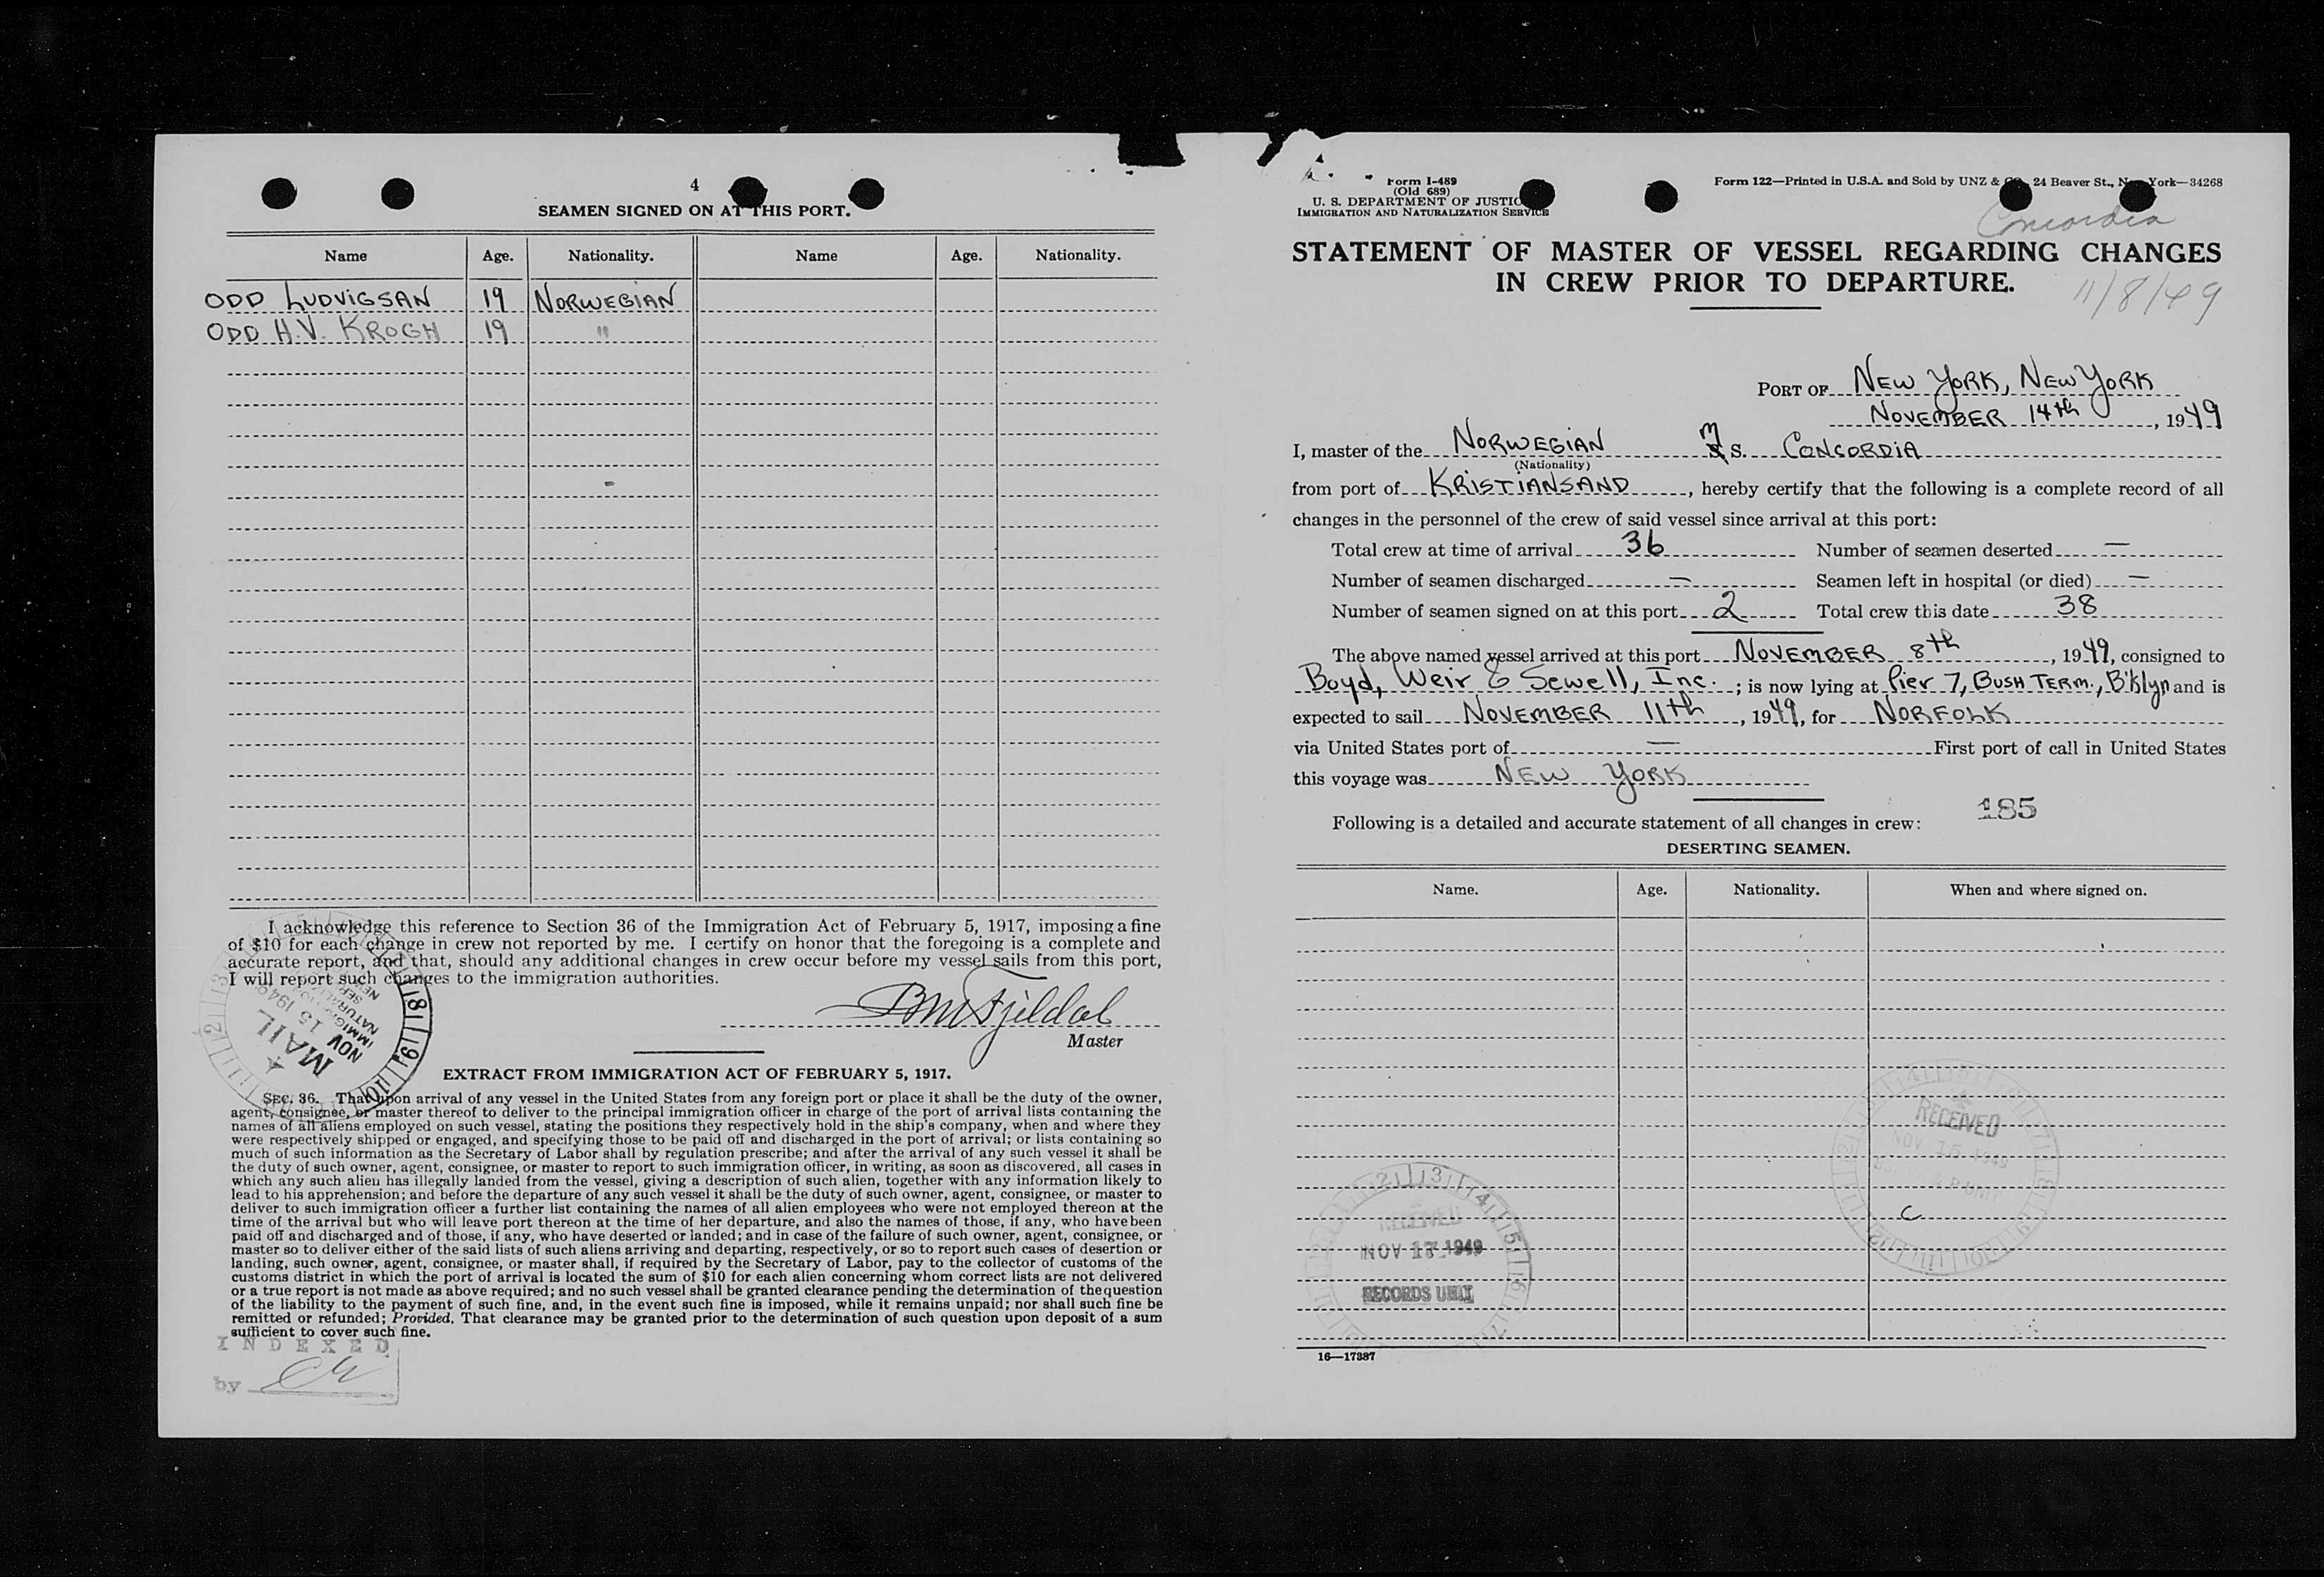 4
SEAMEN SIGNED ON AT THIS PORT.
Name Age. Nationality. Name Age. Nationality.
ODD LUDVIGSAN 19 NORWEGIAN
ODD H.V. KROGH 19 "
I acknowledge this reference to Section 36 of the Immigration Act of February 5, 1917, imposing a fine
of $10 for each change in crew not reported by me. I certify on honor that the foregoing is a complete and
accurate report, and that, should any additional changes in crew occur before my vessel sails from this port,
I will report such changes to the immigration authorities.
Fjeldal
Master
MAIL
NOV 15 1949
EXTRACT FROM IMMIGRATION ACT OF FEBRUARY 5, 1917.
SEC. 36. That upon arrival of any vessel in the United States from any foreign port or place it shall be the duty of the owner,
agent, consignee, or master thereof to deliver to the principal immigration officer in charge of the port of arrival lists containing the
names of all aliens employed on such vessel, stating the positions they respectively hold in the ship's company, when and where they
were respectively shipped or engaged, and specifying those to be paid off and discharged in the port of arrival; or lists containing so
much of such information as the Secretary of Labor shall by regulation prescribe; and after the arrival of any such vessel it shall be
the duty of such owner, agent, consignee, or master to report to such immigration officer, in writing, as soon as discovered, all cases in
which any such alien has illegally landed from the vessel, giving a description of such alien, together with any information likely to
lead to his apprehension; and before the departure of any such vessel it shall be the duty of such owner, agent, consignee, or master to
deliver to such immigration officer a further list containing the names of all alien employees who were not employed thereon at the
time of the arrival but who will leave port thereon at the time of her departure, and also the names of those, if any, who have been
paid off and discharged and of those, if any, who have deserted or landed; and in case of the failure of such owner, agent, consignee, or
master so to deliver either of the said lists of such aliens arriving and departing, respectively, or so to report such cases of desertion or
landing, such owner, agent, consignee, or master shall, if required by the Secretary of Labor, pay to the collector of customs of the
customs district in which the port of arrival is located the sum of $10 for each alien concerning whom correct lists are not delivered
or a true report is not made as above required; and no such vessel shall be granted clearance pending the determination of the question
of the liability to the payment of such fine, and, in the event such fine is imposed, while it remains unpaid; nor shall such fine be
remitted or refunded; Provided, That clearance may be granted prior to the determination of such question upon deposit of a sum
sufficient to cover such fine.
INDEXED
by
Form I-489
(Old 689)
U. S. DEPARTMENT OF JUSTICE
IMMIGRATION AND NATURALIZATION SERVICE
Form 122—Printed in U.S.A. and Sold by UNZ & CO. 24 Beaver St., New York—34268
Concordia
STATEMENT OF MASTER OF VESSEL REGARDING CHANGES
IN CREW PRIOR TO DEPARTURE.
11/8/49
PORT OF NEW YORK, NEW YORK
NOVEMBER 14th, 1949
I, master of the NORWEGIAN M S. CONCORDIA
(Nationality)
from port of KRISTIANSAND, hereby certify that the following is a complete record of all
changes in the personnel of the crew of said vessel since arrival at this port:
Total crew at time of arrival 36 Number of seamen deserted —
Number of seamen discharged — Seamen left in hospital (or died) —
Number of seamen signed on at this port 2 Total crew this date 38
The above named vessel arrived at this port NOVEMBER 8th, 1949, consigned to
Boyd, Weir & Sewell, Inc.; is now lying at Pier 7, BUSH TERM., B'klyn and is
expected to sail NOVEMBER 11th, 1949, for NORFOLK
via United States port of — First port of call in United States
this voyage was NEW YORK
185
Following is a detailed and accurate statement of all changes in crew:
DESERTING SEAMEN.
Name. Age. Nationality. When and where signed on.
RECEIVED
NOV 15 1949
C
RECEIVED
NOV 17 1949
RECORDS UNIT
16—17387